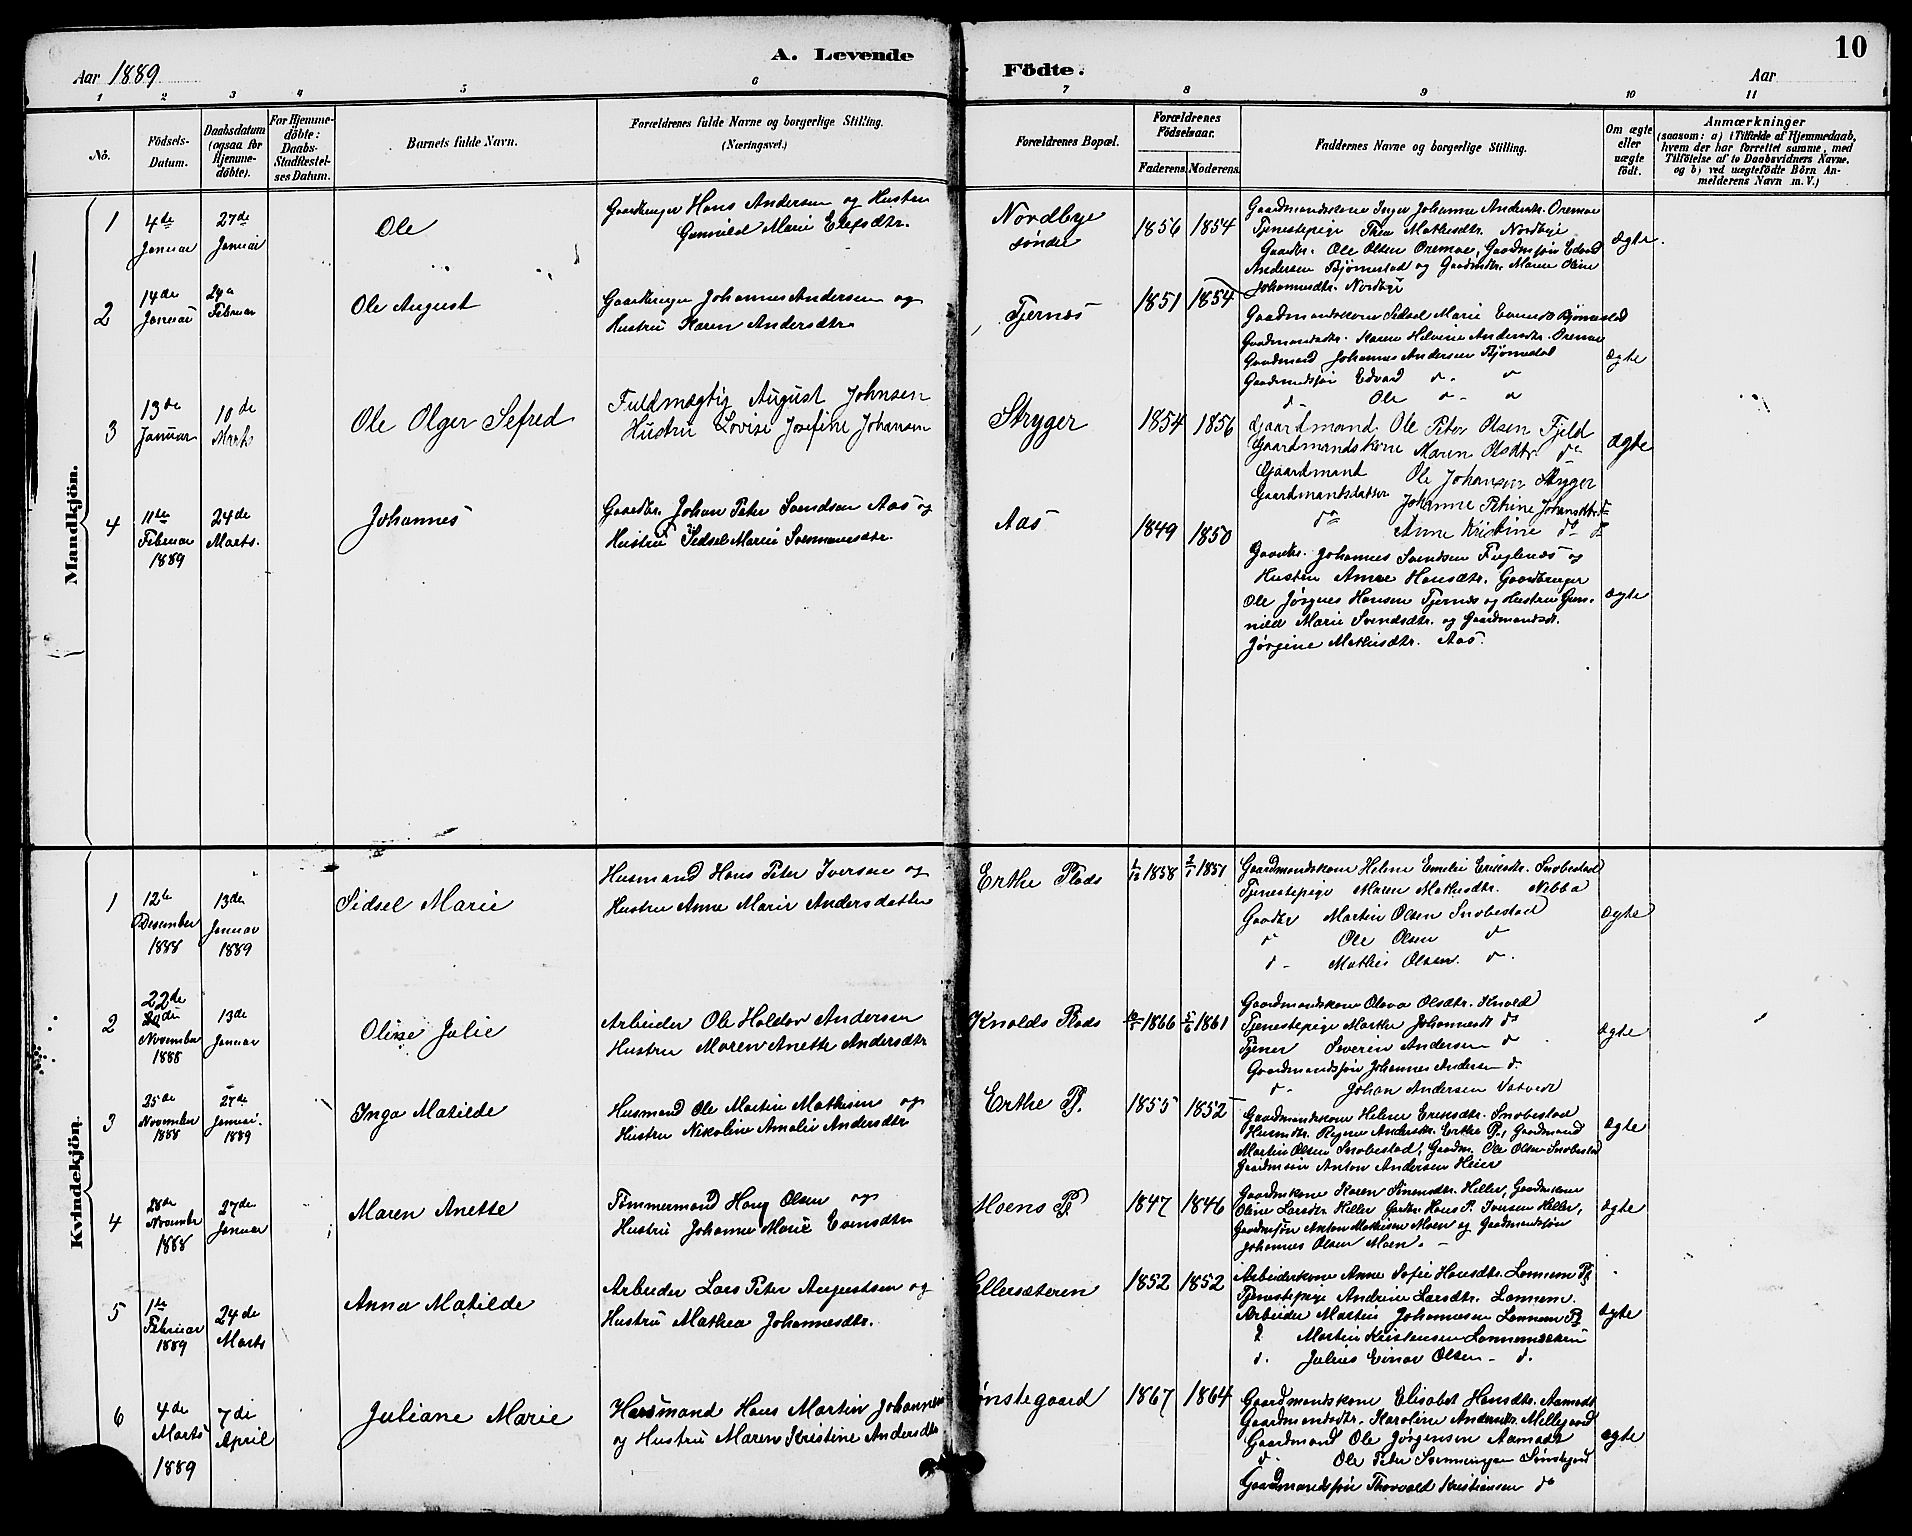 A. Levende Födte. 10
Aar 1889 Aar
1 2 3 4 5 6 7 8 9 10 11
No. Födsels-Datum. Daabsdatum (ogsaa for Hjemme-döbte). For Hjemme-döbte: Daabs-Stadfæstel-ses Datum. Barnets fulde Navn. Forældrenes fulde Navne og borgerlige Stilling. (Næringsvei.) Forældrenes Bopæl. Forældrenes Födselsaar. Faderens. Moderens. Faddernes Navne og borgerlige Stilling. Om ægte eller uægte födt. Anmærkninger (saasom: a) i Tilfælde af Hjemmedaab, hvem der har forrettet samme, med Tilföielse af to Daabsvidners Navne, og b) ved uægtefödte Börn Anmelderens Navn m. V.)
Mandkjön.
1 4de Januar 27de Januar Ole
Gaardbruger Hans Andersen og Hustru
Gunnild Marie Elefsdtr.
Nordbye søndre 1856 1854
Gaardmandskone Inger Johanne Andersdtr. Oremoe
Tjenestepige Thea Mathisdtr. Nordbye
Gaardbr. Ole Olsen Oremoe, Gaardmsøn Edvad
Andersen Bjørnestad og Gaardmdtr. Maren Oline
Johannesdtr. Nordbye
ægte.
2 14de Januar Februar Ole August
Gaardbruger Johannes Andersen og
Hustru Karen Andersdtr.
Tjernæs 1851 1854
Gaardmandskone Sidsel Marie
Gaardmandsdtr. Karen Helvine Andersdtr. Oremoe
Gaardmand Johannes Andersen
Gaardmandssøn Edvad d
d- Ole
ægte
3 13de Januar 10de Marts Ole Olger Sefred
Fuldmægtig August Johnsen
Hustru Lovise Josefine Johansen
Stryger 1854 1856
Gaardmand Ole Peter Olsen Fjeld
Gaardmandskone Maren Olsdtr. do
Gaardmand Ole Johansen Stryger
Gaardmandsdatter Johanne Petrine Johansdtr. do
do Anne Kristine do do
ægte
4 11te Februar 1889 24de Marts. Johannes
Gaardbr. Johan Peter Svendsen Aas og
Hustru Sidsel Marie
Aas 1849 1850
Gaardbr. Johannes Svendsen Fuglenæs og
Hustru Anne Hansdtr. Gaardbruger
Ole Jørgnes Hansen Tjernæs og Hustru Gun-
nild Marie Svendsdtr. og Gaardmandsdt.
Jørgine Mathisdtr. Aas.
ægte
Kvindekjön.
1 12te Desember 1888 13de Januar 1889 Sidsel Marie
Husmand Hans Peter Iversen og
Hustru Anne Marie Andersdatter
Erthe Plads 1858 1851
Gaardmandskone Helene Emelie Eriksdtr. Snobestad
Tjenestepige Maren Mathisdtr. Nebba
Gaardbr Martin Olsen Snobestad
d Ole Olsen d
d- Mathis Olsen. d.
ægte
2 22de November 1888 13de Januar Oline Julie
Arbeider Ole Haldor Andersen
Hustru Maren Anette Andersdtr
Knolds Plads 1866 1861
Gaardmandskone Olava Olsdtr. Knold
Tjenestepige Marthe Johannesdt do
Tjener Severin Andersen d
Gaardmandssøn Johannes Andersen d.
d- Johan Andersen Vatvedt
ægte
3 25de November 1888 27de Januar. 1889 Inga Matilde
Husmand Ole Martin Mathisen og
Hustru Nikoline Amalie Andersdtr
Erthe Pl. 1855 1852
Gaardmandskone Helene Eriksdtr. Snobestad
Husmdtr. Regine Andersdtr. Erthe Pl, Gaardmand
Martin Olsen Snobestad, Gaardm. Ole Olsen Snobestad
Gaardmsøn Anton Andersen Heier
ægte
4 28de November 1888 27de Januar Maren Anette
Tømmermand Hans Olsen og
Hustru Johanne Marie
Moens Pl 1847 1846
Gaardmkone Karen Simensdtr. Hiller, Gaardmkone
Oline Larsdtr Hiller Gardbr. Hans P. Iversen Hiller,
Gaardmsøn Anton Mathisen Moen og Gaardmandssøn
Johannes Olsen Moen.
ægte
5 1te Februar 1889 24de Marts Anna Matilde
Arbeider Lars Peter Augustsen og
Hustru Mathea Johannesdtr.
Ellersæteren 1852 1852
Arbeiderkone Anne Sofie Hansdtr. Lonnem Pl
Tjenestepige Andrine Larsdtr. Lonnem.
Arbeider Martin Johannesen Lonnem Pl
d Martin Kristensen
d. Julius Einar Olsen - d.
ægte
6 4de Marts 1889 7de April Juliane Marie
Husmand Hans Martin Johannes
og Hustru Maren Kristine Andersdtr
ønstegaard 1867 1864
Gaardmandskone Elisabet Hansdtr. Aamodt
Gaardmandsdtr. Karoline Andersdtr.
Gaardmand Ole Jørgensen Aamodt
d. Ole Peter
Gaardmandssøn Thorvald Kristiansen do
ægte